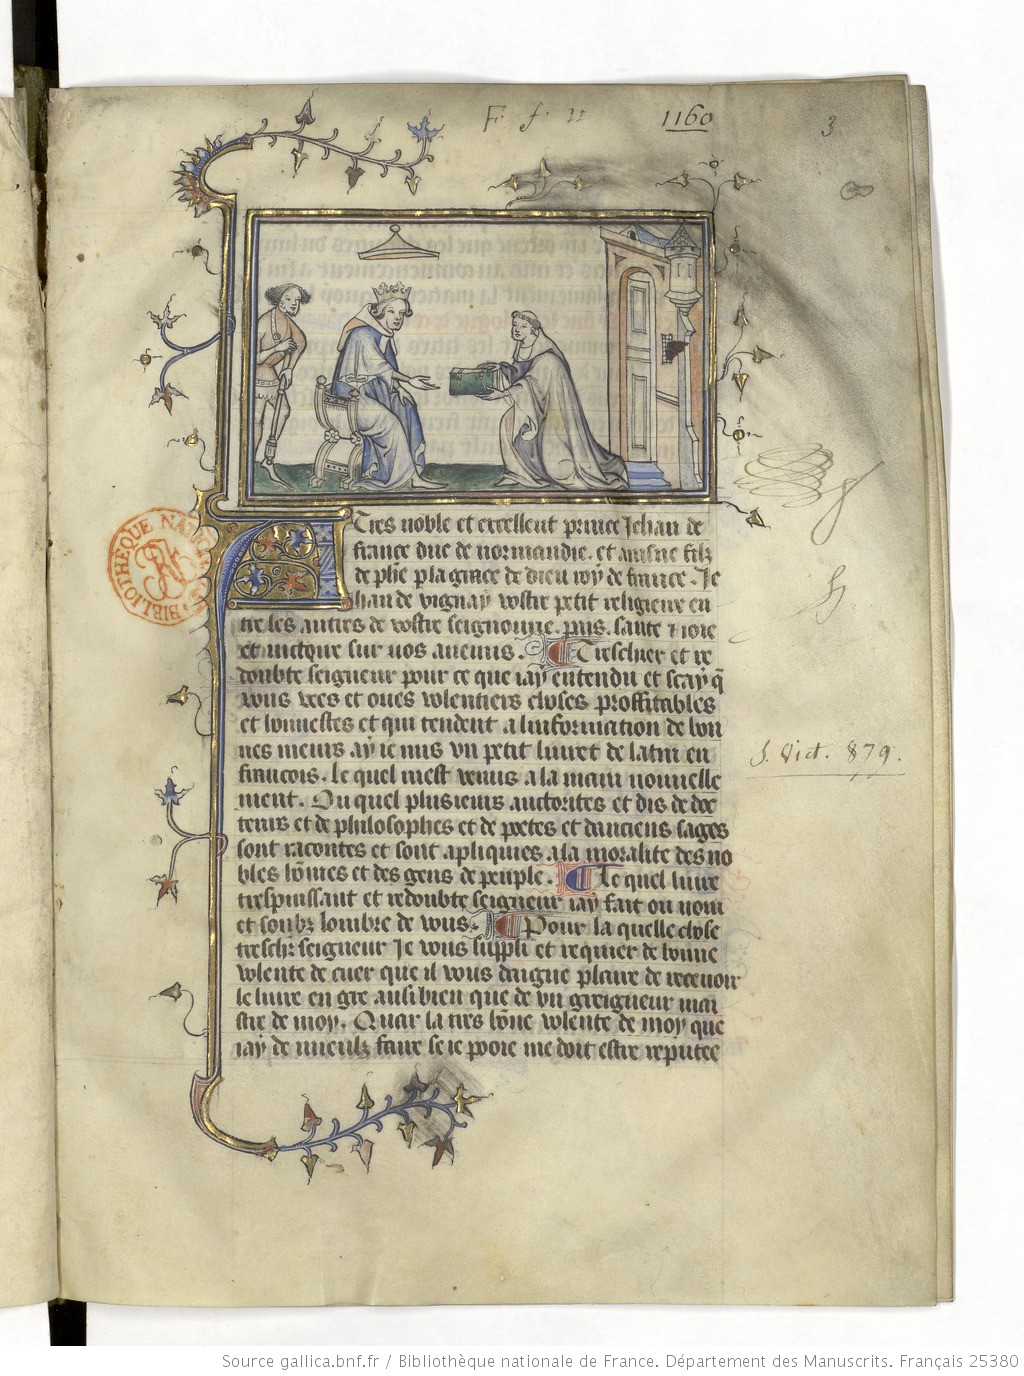 F. f. 11
1160
3
A Tres noble et excellent prince Jehan de
france duc de normandie. et ainsne filz
de phe p la grace de dieu roy de france. Je
han de vignay vostre petit religieux en
tre les autres de vostre seignourie. pais. sante ⁊ ioie
et victoire sur vos anemis. ¶ Treschier et re
doubte seigneur pour ce que iay entendu et scay q̃
vous vees et oues volentiers choses proffitables
et honnestes et qui tendent a linformation de bon
nes meurs ay ie mis vn petit liuret de latin en
francois. le quel mest venus a la main nouuelle
ment. Ou quel plusieurs auctorites et dis de doc
teurs et de philosophes et de poetes et danciens sages
sont racontes et sont apliquies a la moralite des no
bles hõmes et des gens de peuple. ¶ Le quel liure
trespuissant et redoubte seigneur iay fait ou nom
et soubz lombre de vous. ¶ Pour la quelle chose
treschr seigneur Je vous suppli et requier de bonne
volente de cuer que il vous daigne plaire de receuoir
le liure en gre ausi bien que de vn greigneur mai
stre de moy. Quar la tres bõne volente de moy que
iay de mieulz faire se ie pooie me doit estre reputee
S. Vict. 879.
BIBLIOTHÈQUE NATIONALE
Source gallica.bnf.fr / Bibliothèque nationale de France. Département des Manuscrits. Français 25380